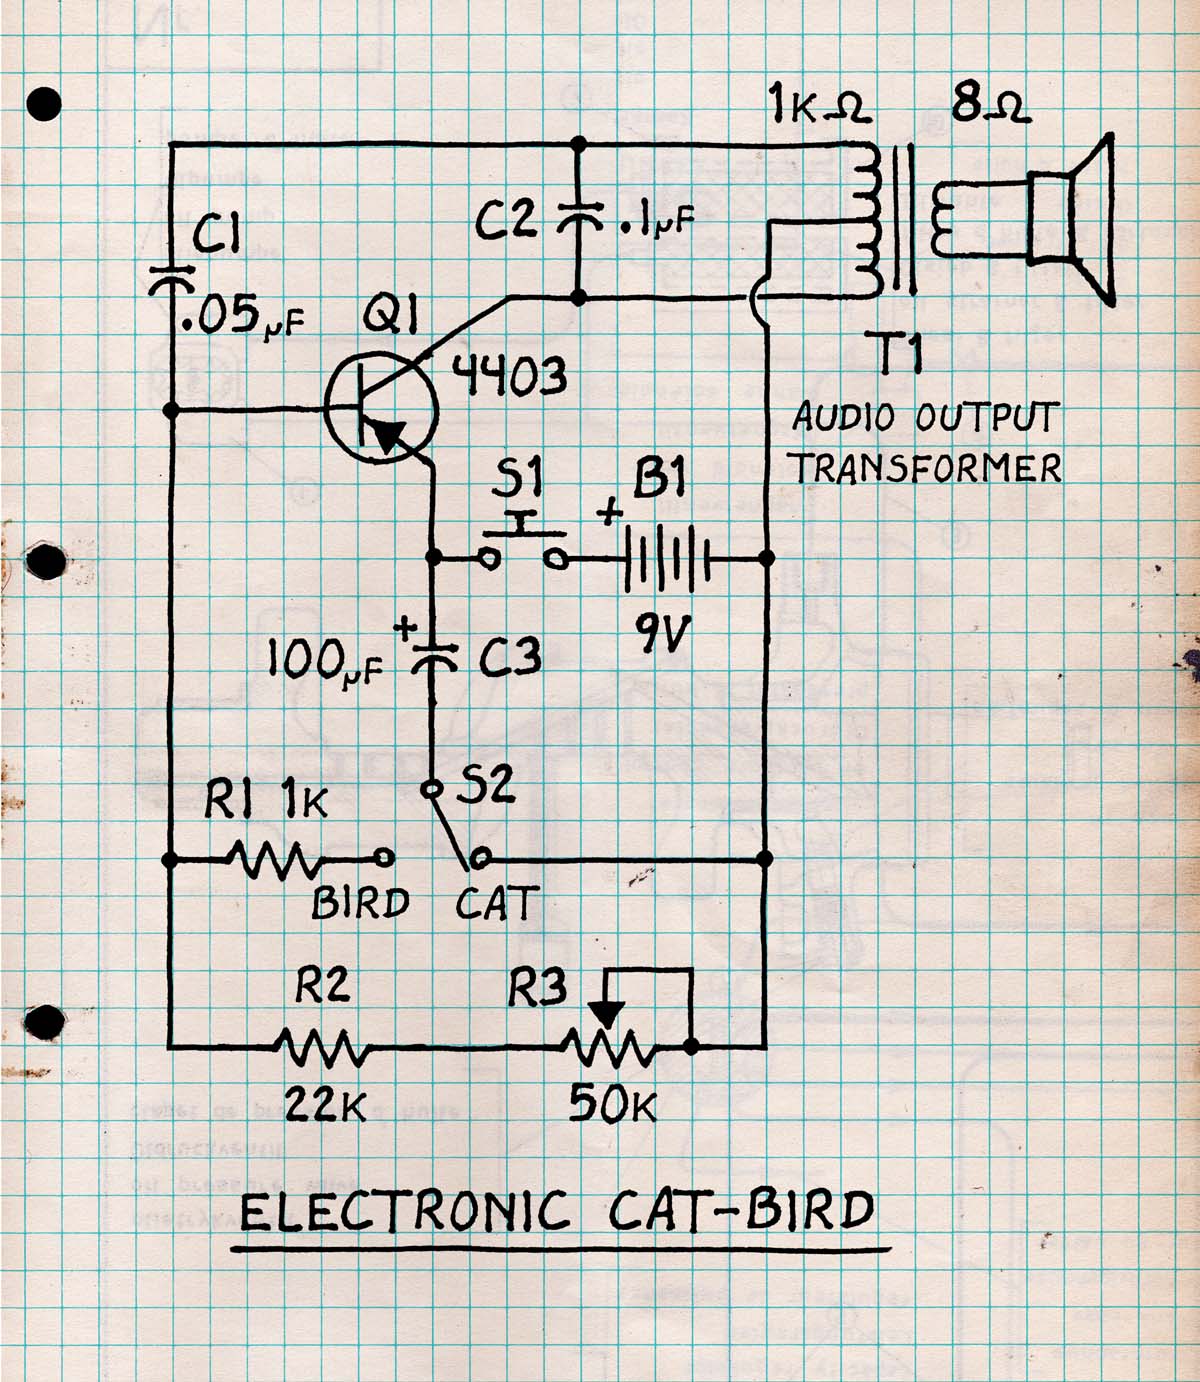 1K Ω 8Ω
C1
.05µF
C2 .1µF
Q1
4403
T1
AUDIO OUTPUT
TRANSFORMER
S1 B1
+
9V
+
100µF C3
R1 1K S2
BIRD CAT
R2 R3
22K 50K
ELECTRONIC CAT-BIRD